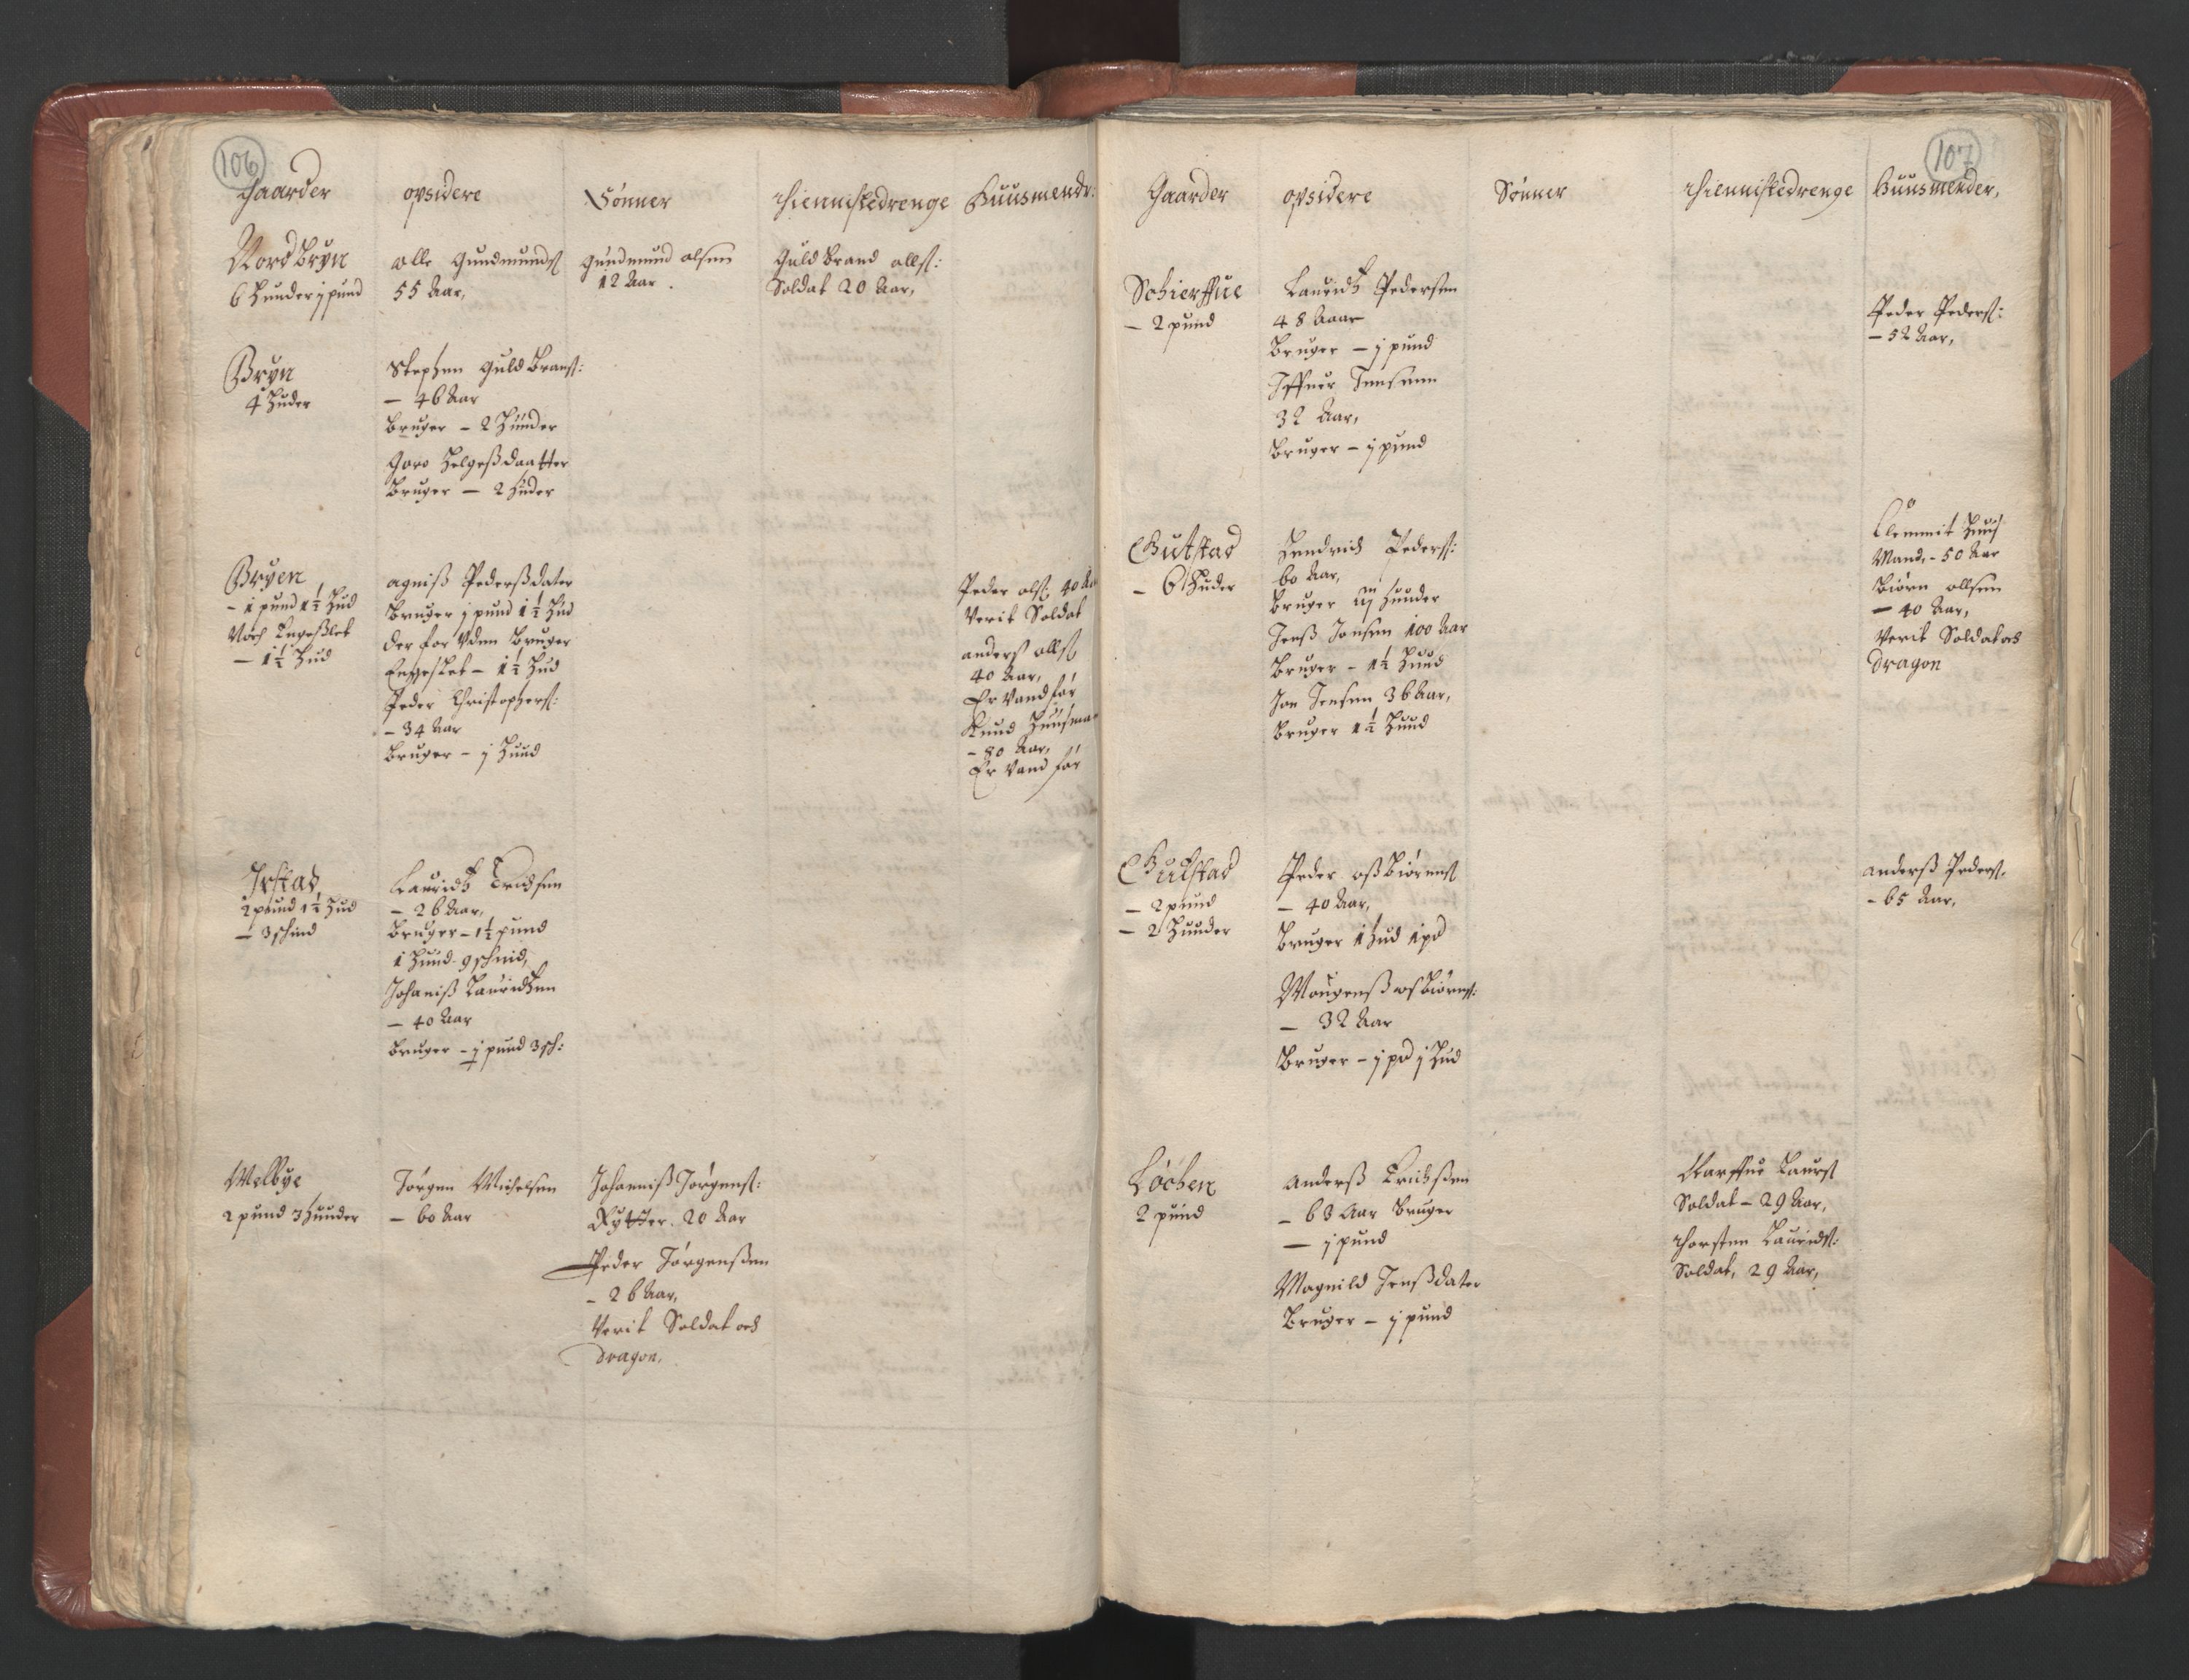 106
Gaarder
opsidere
Sønner
thiennistedrenge
Huusmendr:
Nordbryn
6 Hunder j pund
olle Gundmundß
55 Aar,
Gundmund olsen
12 Aar.
Guldbrand ollß:
Soldat 20 Aar,
Bryn
4 Huder
Stephen Guldbranß:
– 46 Aar
Bruger – 2 Hunder
Goro Helgeßdaatter
Bruger – 2 Huder
Bryen
– 1 pund 1½ Hud
Noch Engeßlet
– 1½ Hud
agniß Pederßdater
Bruger j pund 1½ Hud
der for Uden Bruger
Engeslet – 1½ Hud
Peder Christopherß:
– 34 Aar
Bruger – j Hund
Peder olß: 40
Verit Soldat
anderß ollß
40 Aar,
Er Vandfør
Knud Huusma
– 80 Aar,
Er Vand før
Irstad,
2 pund 1½ Hud
– 3 schind
Lauridtz Erichsen
– 26 Aar,
Bruger – 1½ pund
1 Hund 9 schind,
Johaniß Lauridtzen
– 40 Aar
Bruger – j pund 3 sch:
Melbye
2 pund 3 Huuder
Jørgen Michelsen
– 60 Aar
Johanniß Jørgenß:
Rytter. 20 Aar
Peder Jørgenßen
– 26 Aar,
Verit Soldat och
dragon,
107
Gaarder
opsidere
Sønner
thiennistedrenge
Huusmender,
Schierffue
– 2 pund
Lauridtz Pedersen
48 Aaar
Bruger – j pund
Iffuer Jensenn
32 Aar,
Bruger – j pund
Peder Pederß:
– 52 Aar,
Gutstad
– 6 Huder
Hendrich Pederß:
60 Aar,
Bruger iij Huuder
Jenß Jonsen 100 Aar
Bruger – 1½ Huud
Jon Jensen 36 Aar,
Bruger 1½ Huud
Clemmit Huuß
Mand, – 50 Aar
Biørn ollsen
– 40 Aar,
Verit Soldat och
dragon
Gutstad
– 2 pund
– 2 Huuder
Peder oßbiørenß
– 40 Aar,
Bruger 1 Hud 1 pd
Mougenß osbiørnß:
– 32 Aar
Bruger – j pd j Hud
anderß Pederß,
– 65 Aar,
Løchen
2 pund
Anderß Erichßen
– 63 Aar Bruger
– j pund
Magnild Jenßdater
Bruger – j pund
Narffue Laurß
Soldat – 29 Aar,
thorsten Lauridß:
Soldat, 29 Aar,